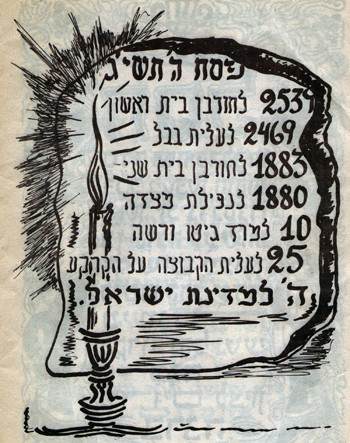 פסח ה'תשי"ג
2539 לחורבן בית ראשון
2469 לעלית בבל
1883 לחורבן בית שני
1880 לנפילת מצדה
10 למרד גיטו ורשה
25 לעלית הקבוצה על הקרקע
ה' למדינת ישראל.